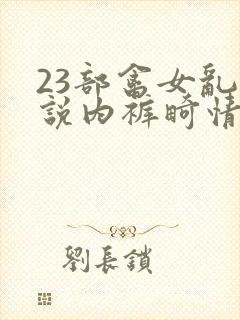 23部畜女乱
說内裤畸情
劉長鎖